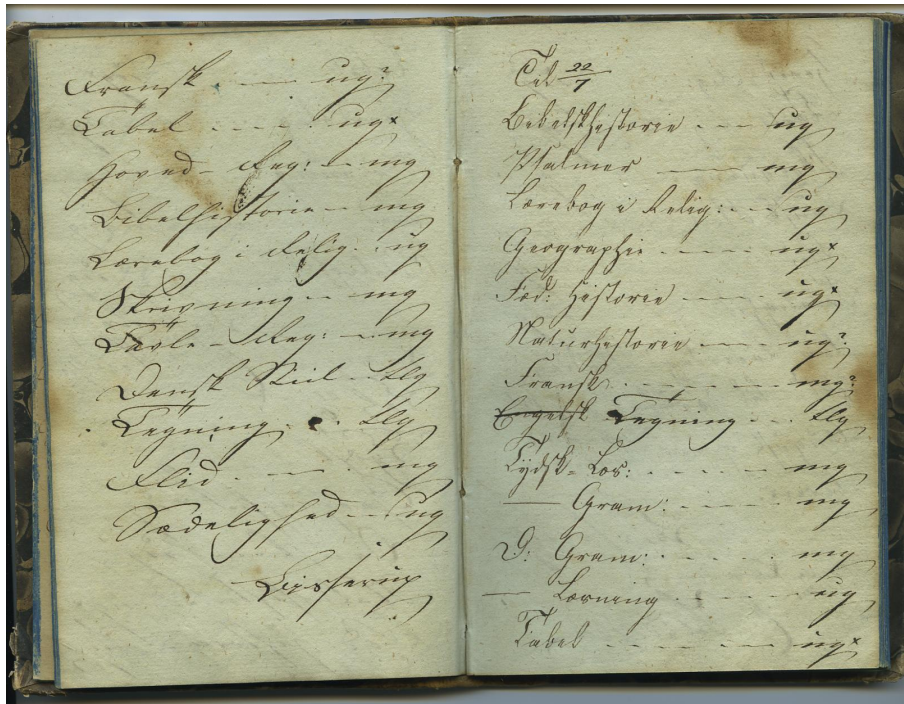 Fransk - - - ug?
Tabel - - - - ug×
Hoved - Reg: - mg
Bibelhistorie - mg
Lærebog i Relig. - ug
Skrivning - - mg
Tavle - Reg: - mg
Dansk Stiil - tlg
Tegning. - . tlg
Flid. - - - mg
Sædelighed - ug
Lisserup
Til 22/7
Bibelskhistorie - - - ug
Psalmer - - - mg
Lærebog i Relig: - - ug
Geographie - - - - ug×
Fæd: Historie - - - ug×
Naturhistorie - - - ug?
Fransk - - - - - mg?
Engelsk Tegning - - - tlg
Tydsk - Læs: - - - - mg
— Gram: - - - - mg
D: Gram: - - - - mg
— Læsning - - - - ug
Tabel - - - - - ug×